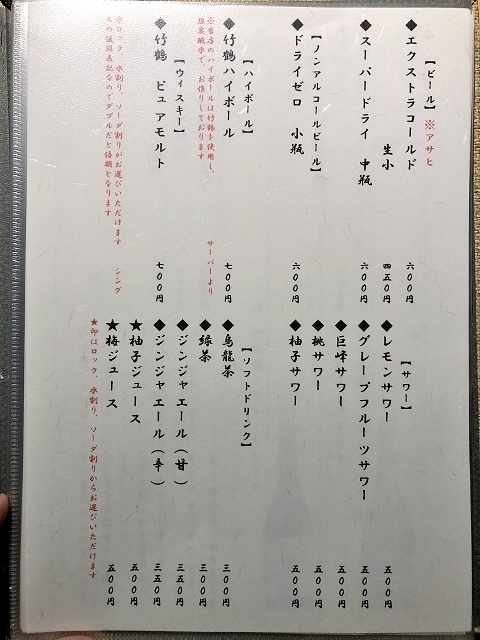 【ビール】※アサヒ
◆エクストラコールド 六〇〇円
生小 四五〇円
◆スーパードライ 中瓶 六〇〇円
【ノンアルコールビール】
◆ドライゼロ 小瓶 六〇〇円
【ハイボール】
◆竹鶴ハイボール 七〇〇円
※当店のハイボールは竹鶴を使用し、サーバーより
強炭酸水で、お作りしております
【ウィスキー】
◆竹鶴 ピュアモルト 七〇〇円
※ロック、水割り、ソーダ割りがお選びいただけます シング
ルの値段表記なのでダブルだと倍額となります
【サワー】
◆レモンサワー 五〇〇円
◆グレープフルーツサワー 五〇〇円
◆巨峰サワー 五〇〇円
◆桃サワー 五〇〇円
◆柚子サワー 五〇〇円
【ソフトドリンク】
◆烏龍茶 三〇〇円
◆緑茶 三〇〇円
◆ジンジャエール（甘） 三五〇円
◆ジンジャエール（辛） 三五〇円
★柚子ジュース 五〇〇円
★梅ジュース 五〇〇円
★印はロック、水割り、ソーダ割りからお選びいただけます